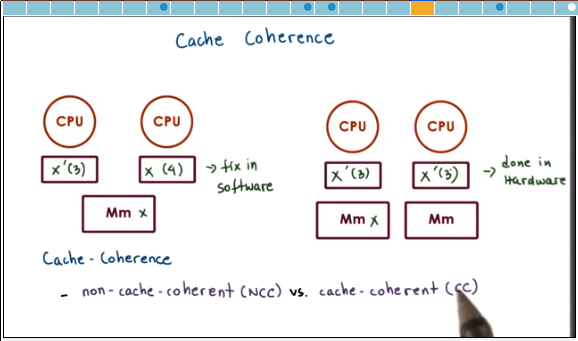 Cache Coherence
CPU CPU CPU CPU
x'(3) x (4) → fix in software
x'(3) x'(3) → done in Hardware
Mm x
Mm x Mm
Cache-Coherence
- non-cache-coherent (NCC) vs. cache-coherent (CC)